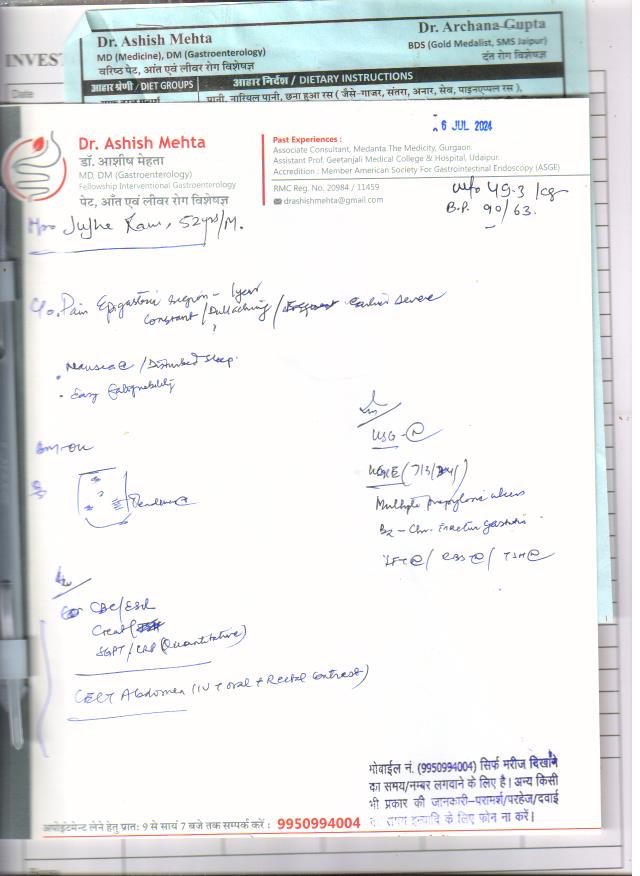 INVES
Date
Dr. Ashish Mehta
MD (Medicine), DM (Gastroenterology)
वरिष्ठ पेट, आँत एवं लीवर रोग विशेषज्ञ
Dr. Archana Gupta
BDS (Gold Medalist, SMS Jaipur)
दंत रोग विशेषज्ञ
आहार श्रेणी / DIET GROUPS
आहार निर्देश / DIETARY INSTRUCTIONS
पानी, नारियल पानी, छना हुआ रस (जैसे-गाजर, संतरा, अनार, सेब, पाइनएप्पल रस),
6 JUL 2024
Dr. Ashish Mehta
डॉ. आशीष मेहता
MD, DM (Gastroenterology)
Fellowship Interventional Gastroenterology
पेट, आँत एवं लीवर रोग विशेषज्ञ
Past Experiences :
Associate Consultant, Medanta The Medicity, Gurgaon.
Assistant Prof. Geetanjali Medical College & Hospital, Udaipur.
Accredition : Member American Society For Gastrointestinal Endoscopy (ASGE)
RMC Reg. No. 20984 / 11459
drashishmehta@gmail.com
49.3 /kg
B.P. 90/63.
Ram, 52yrs/M.
C/o. Pain Epigastric region - 1year
Constant / Dull aching / Earlier Severe
Nausea / Disturbed sleep.
Easy fatiguability
USG - N
UGIE (7/3/24)
Multiple prepyloric ulcers
Bx - Chr. gastritis
LFT N / RBS N / TSH N
CBC/ESR
Creat
SGPT / CRP (Quantitative)
CECT Abdomen (IV + oral + Rectal contrast)
मोबाईल नं. (9950994004) सिर्फ मरीज दिखाने
का समय/नम्बर लगवाने के लिए है। अन्य किसी
भी प्रकार की जानकारी-परामर्श/परहेज/दवाई
इत्यादि के लिए फोन ना करें।
अपोइंटमेन्ट लेने हेतु प्रातः 9 से सायं 7 बजे तक सम्पर्क करें : 9950994004